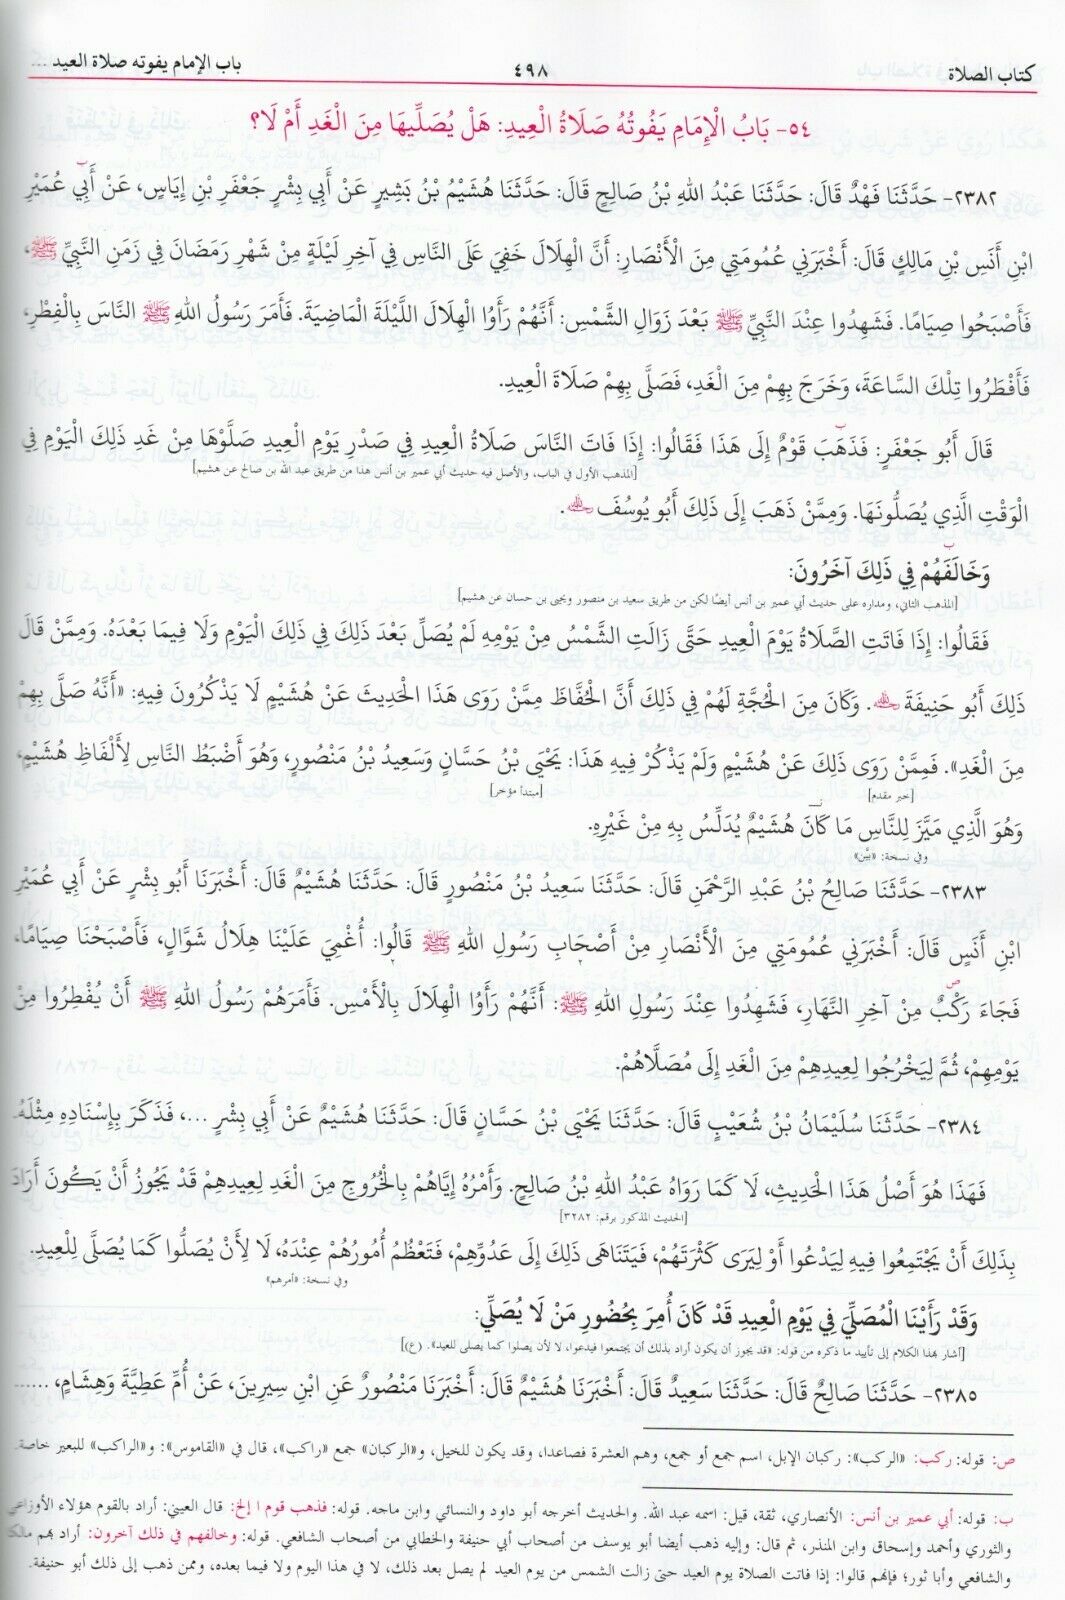 كتاب الصلاة ٤٩٨ باب الإمام يفوته صلاة العيد ...
٥٤- بَابُ الْإِمَامِ يَفُوتُهُ صَلَاةُ الْعِيدِ: هَلْ يُصَلِّيهَا مِنَ الْغَدِ أَمْ لَا؟
٢٣٨٢- حَدَّثَنَا فَهْدٌ قَالَ: حَدَّثَنَا عَبْدُ اللهِ بْنُ صَالِحٍ قَالَ: حَدَّثَنَا هُشَيْمُ بْنُ بَشِيرٍ عَنْ أَبِي بِشْرٍ جَعْفَرِ بْنِ إِيَاسٍ، عَنْ أَبِي عُمَيْرِ
ابْنِ أَنَسِ بْنِ مَالِكٍ قَالَ: أَخْبَرَنِي عُمُومَتِي مِنَ الْأَنْصَارِ: أَنَّ الْهِلَالَ خَفِيَ عَلَى النَّاسِ فِي آخِرِ لَيْلَةٍ مِنْ شَهْرِ رَمَضَانَ فِي زَمَنِ النَّبِيِّ ﷺ،
فَأَصْبَحُوا صِيَامًا. فَشَهِدُوا عِنْدَ النَّبِيِّ ﷺ بَعْدَ زَوَالِ الشَّمْسِ: أَنَّهُمْ رَأَوُا الْهِلَالَ اللَّيْلَةَ الْمَاضِيَةَ. فَأَمَرَ رَسُولُ اللهِ ﷺ النَّاسَ بِالْفِطْرِ،
فَأَفْطَرُوا تِلْكَ السَّاعَةَ، وَخَرَجَ بِهِمْ مِنَ الْغَدِ، فَصَلَّى بِهِمْ صَلَاةَ الْعِيدِ.
قَالَ أَبُو جَعْفَرٍ: فَذَهَبَ قَوْمٌ إِلَى هَذَا فَقَالُوا: إِذَا فَاتَ النَّاسَ صَلَاةُ الْعِيدِ فِي صَدْرِ يَوْمِ الْعِيدِ صَلَّوْهَا مِنْ غَدِ ذَلِكَ الْيَوْمِ فِي
[المذهب الأول في الباب، والأصل فيه حديث أبي عمير بن أنس هذا من طريق عبد الله بن صالح عن هشيم]
الْوَقْتِ الَّذِي يُصَلُّونَهَا. وَمِمَّنْ ذَهَبَ إِلَى ذَلِكَ أَبُو يُوسُفَ رحمه الله.
وَخَالَفَهُمْ فِي ذَلِكَ آخَرُونَ:
[المذهب الثاني، ومداره على حديث أبي عمير بن أنس أيضًا لكن من طريق سعيد بن منصور ويحيى بن حسان عن هشيم]
فَقَالُوا: إِذَا فَاتَتِ الصَّلَاةُ يَوْمَ الْعِيدِ حَتَّى زَالَتِ الشَّمْسُ مِنْ يَوْمِهِ لَمْ يُصَلِّ بَعْدَ ذَلِكَ فِي ذَلِكَ الْيَوْمِ وَلَا فِيمَا بَعْدَهُ. وَمِمَّنْ قَالَ
ذَلِكَ أَبُو حَنِيفَةَ رحمه الله. وَكَانَ مِنَ الْحُجَّةِ لَهُمْ فِي ذَلِكَ أَنَّ الْحُفَّاظَ مِمَّنْ رَوَى هَذَا الْحَدِيثَ عَنْ هُشَيْمٍ لَا يَذْكُرُونَ فِيهِ: «أَنَّهُ صَلَّى بِهِمْ
مِنَ الْغَدِ». فَمِمَّنْ رَوَى ذَلِكَ عَنْ هُشَيْمٍ وَلَمْ يَذْكُرْ فِيهِ هَذَا: يَحْيَى بْنُ حَسَّانٍ وَسَعِيدُ بْنُ مَنْصُورٍ، وَهُوَ أَضْبَطُ النَّاسِ لِأَلْفَاظِ هُشَيْمٍ،
[خبر مقدم] [مبتدأ مؤخر]
وَهُوَ الَّذِي مَيَّزَ لِلنَّاسِ مَا كَانَ هُشَيْمٌ يُدَلِّسُ بِهِ مِنْ غَيْرِهِ.
وفي نسخة: «بين»
٢٣٨٣- حَدَّثَنَا صَالِحُ بْنُ عَبْدِ الرَّحْمَنِ قَالَ: حَدَّثَنَا سَعِيدُ بْنُ مَنْصُورٍ قَالَ: حَدَّثَنَا هُشَيْمٌ قَالَ: أَخْبَرَنَا أَبُو بِشْرٍ عَنْ أَبِي عُمَيْرِ
ابْنِ أَنَسٍ قَالَ: أَخْبَرَنِي عُمُومَتِي مِنَ الْأَنْصَارِ مِنْ أَصْحَابِ رَسُولِ اللهِ ﷺ قَالُوا: أُغْمِيَ عَلَيْنَا هِلَالُ شَوَّالٍ، فَأَصْبَحْنَا صِيَامًا،
فَجَاءَ رَكْبٌ مِنْ آخِرِ النَّهَارِ، فَشَهِدُوا عِنْدَ رَسُولِ اللهِ ﷺ: أَنَّهُمْ رَأَوُا الْهِلَالَ بِالْأَمْسِ. فَأَمَرَهُمْ رَسُولُ اللهِ ﷺ أَنْ يُفْطِرُوا مِنْ
يَوْمِهِمْ، ثُمَّ لِيَخْرُجُوا لِعِيدِهِمْ مِنَ الْغَدِ إِلَى مُصَلَّاهُمْ.
٢٣٨٤- حَدَّثَنَا سُلَيْمَانُ بْنُ شُعَيْبٍ قَالَ: حَدَّثَنَا يَحْيَى بْنُ حَسَّانٍ قَالَ: حَدَّثَنَا هُشَيْمٌ عَنْ أَبِي بِشْرٍ ...، فَذَكَرَ بِإِسْنَادِهِ مِثْلَهُ.
فَهَذَا هُوَ أَصْلُ هَذَا الْحَدِيثِ، لَا كَمَا رَوَاهُ عَبْدُ اللهِ بْنُ صَالِحٍ. وَأَمْرُهُ إِيَّاهُمْ بِالْخُرُوجِ مِنَ الْغَدِ لِعِيدِهِمْ قَدْ يَجُوزُ أَنْ يَكُونَ أَرَادَ
[الحديث المذكور برقم: ٣٢٨٢]
بِذَلِكَ أَنْ يَجْتَمِعُوا فِيهِ لِيَدْعُوا أَوْ لِيَرَى كَثْرَتَهُمْ، فَيَتَنَاهَى ذَلِكَ إِلَى عَدُوِّهِمْ، فَتَعْظُمُ أُمُورُهُمْ عِنْدَهُ، لَا لِأَنْ يُصَلُّوا كَمَا يُصَلَّى لِلْعِيدِ.
وفي نسخة: «أمرهم»
وَقَدْ رَأَيْنَا الْمُصَلِّيَ فِي يَوْمِ الْعِيدِ قَدْ كَانَ أُمِرَ بِحُضُورِ مَنْ لَا يُصَلِّي:
[أشار بهذا الكلام إلى تأييد ما ذكره من قوله: «قد يجوز أن يكون أراد بذلك أن يجتمعوا فيدعوا، لا لأن يصلوا كما يصلى للعيد». (ع)]
٢٣٨٥- حَدَّثَنَا صَالِحٌ قَالَ: حَدَّثَنَا سَعِيدٌ قَالَ: أَخْبَرَنَا هُشَيْمٌ قَالَ: أَخْبَرَنَا مَنْصُورٌ عَنِ ابْنِ سِيرِينَ، عَنْ أُمِّ عَطِيَّةَ وَهِشَامٍ، ......
ص: قوله: ركب: «الركب»: ركبان الإبل، اسم جمع أو جمع، وهم العشرة فصاعدا، وقد يكون للخيل، و«الركبان» جمع «راكب»، قال في «القاموس»: و«الراكب» للبعير خاصة.
ب: قوله: أبي عمير بن أنس: الأنصاري، ثقة، قيل: اسمه عبد الله. والحديث أخرجه أبو داود والنسائي وابن ماجه. قوله: فذهب قوم ا إلخ: قال العيني: أراد بالقوم هؤلاء الأوزاعي
والثوري وأحمد وإسحاق وابن المنذر، ثم قال: وإليه ذهب أيضا أبو يوسف من أصحاب أبي حنيفة والخطابي من أصحاب الشافعي. قوله: وخالفهم في ذلك آخرون: أراد بهم مالكا
والشافعي وأبا ثور؛ فإنهم قالوا: إذا فاتت الصلاة يوم العيد حتى زالت الشمس من يوم العيد لم يصل بعد ذلك، لا في هذا اليوم ولا فيما بعده، وممن ذهب إلى ذلك أبو حنيفة.